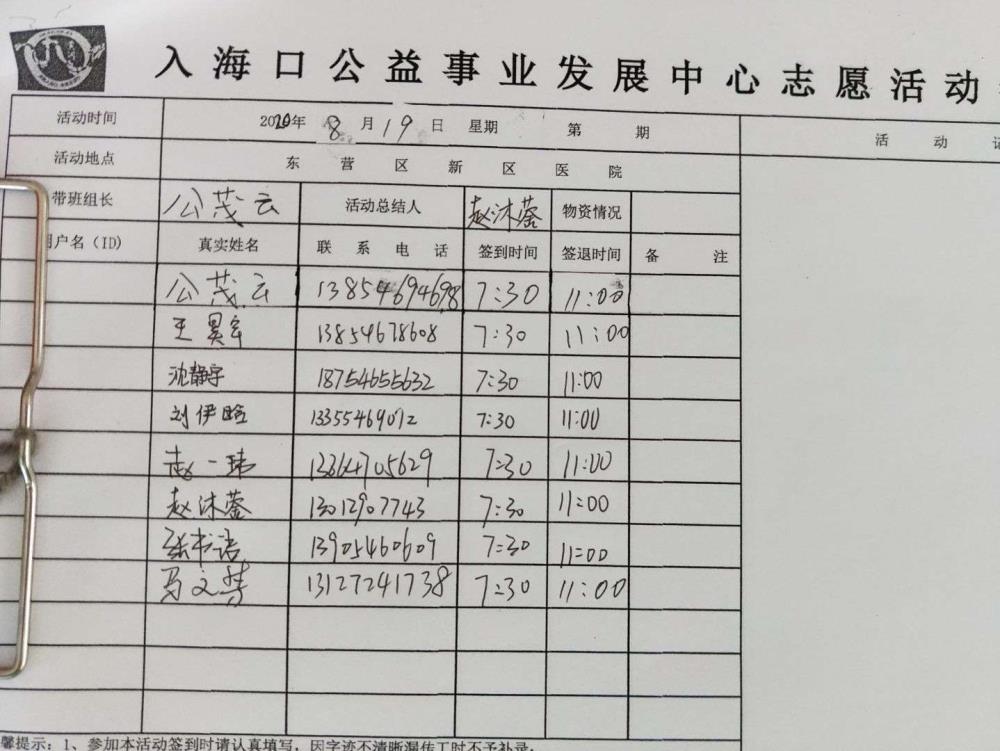 入海口公益事业发展中心志愿活动
活动时间 2020年 8 月 19 日 星期 第 期 活 动 记
活动地点 东营区新区医院
带班组长 公茂云 活动总结人 赵沐蓉 物资情况
用户名(ID) 真实姓名 联系电话 签到时间 签退时间 备注
公茂云 13854694698 7:30 11:00
王昊宇 13854678608 7:30 11:00
沈静宇 18754655632 7:30 11:00
刘伊晗 13355469092 7:30 11:00
赵一玮 13864705629 7:30 11:00
赵沐蓉 13012907743 7:30 11:00
张书语 13905460609 7:30 11:00
马文 13127241738 7:30 11:00
馨提示:1、参加本活动签到时请认真填写,因字迹不清晰漏传工时不予补录;